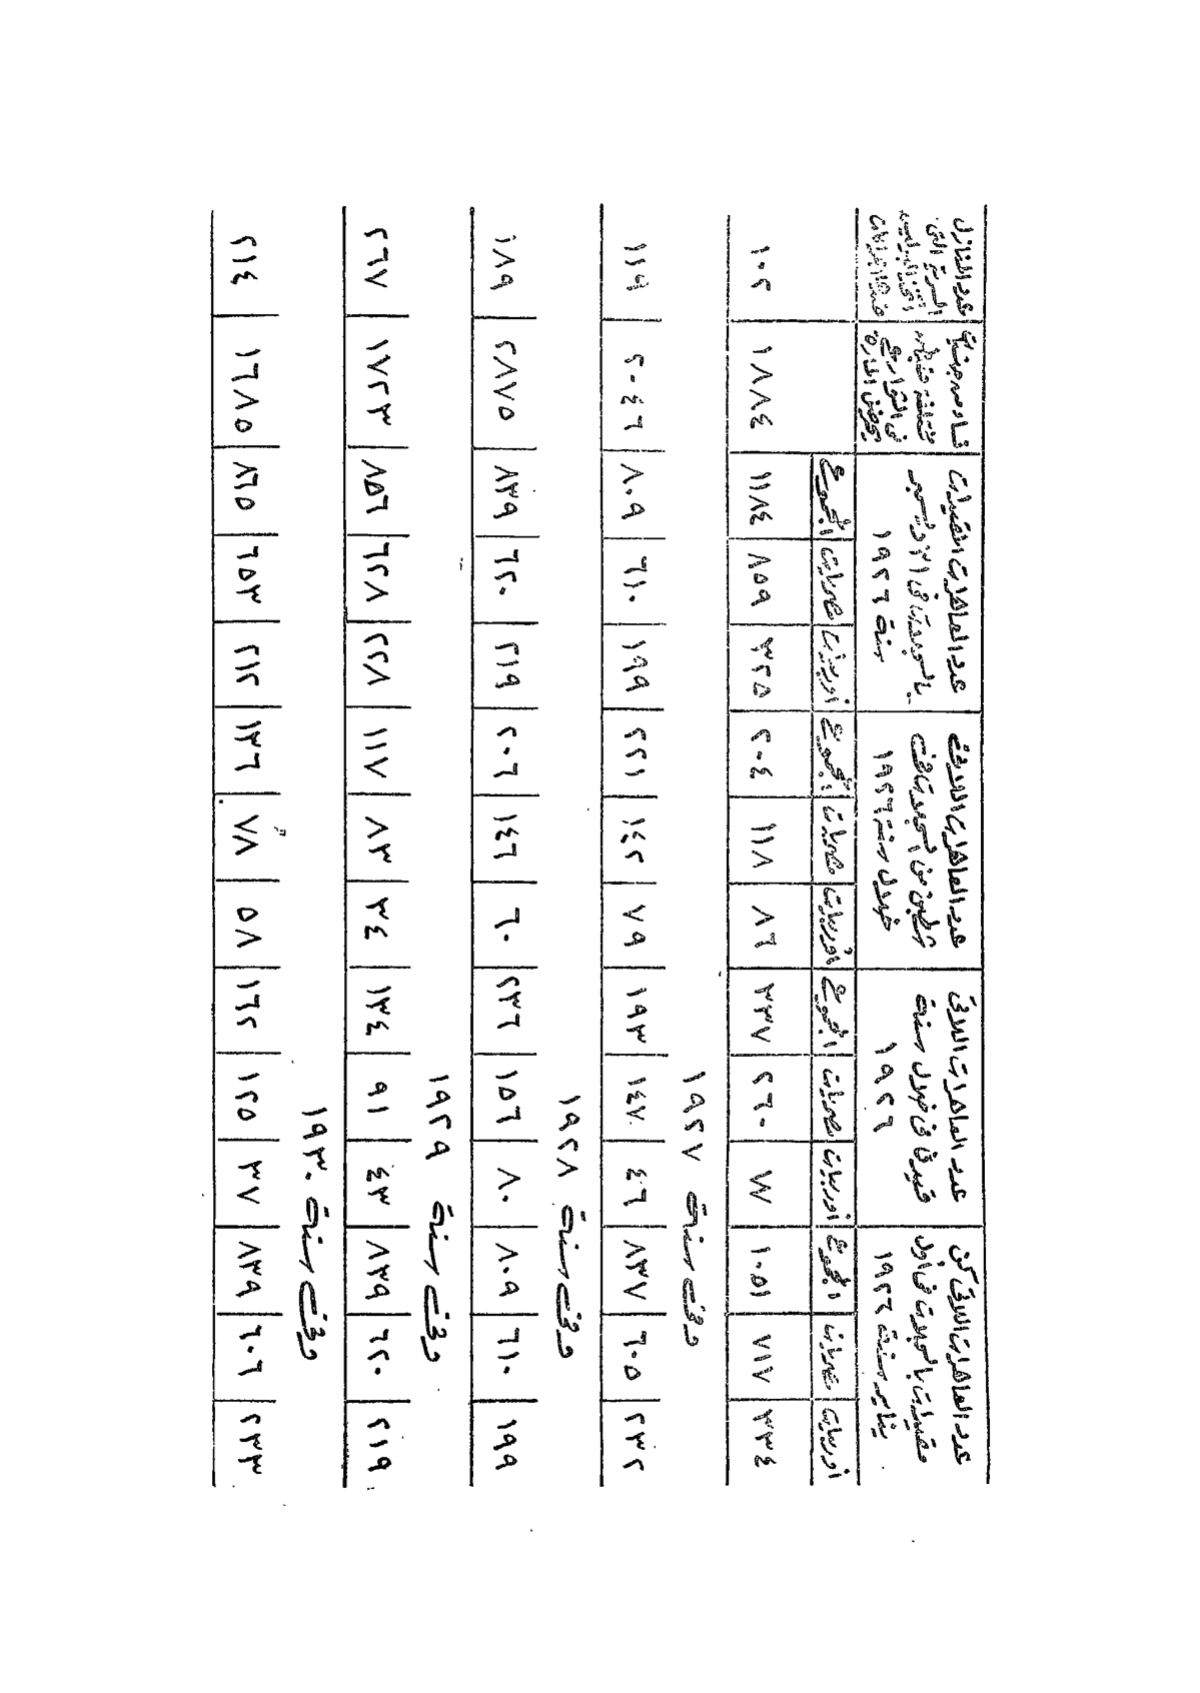 عدد العاهرات اللاتى كن
مقيدات بالسجلات فى أول
يناير سنة ١٩٢٦
عدد العاهرات اللاتى
قيدن فى خلال سنة
١٩٢٦
عدد العاهرات اللاتى
شطبن من السجلات فى
خلال سنة ١٩٢٦
عدد العاهرات المقيدات
بالسجلات فى ٣١ ديسمبر
سنة ١٩٢٦
فى الشوارع
عدد المنازل
السرية التى
اتخذ البوليس
ضدها اجراءات
اوربيات مصريات المجموع اوربيات مصريات المجموع اوربيات مصريات المجموع اوربيات مصريات المجموع
٣٣٤ ٧١٧ ١٠٥١ ٧٧ ٢٦٠ ٣٣٧ ٨٦ ١١٨ ٢٠٤ ٣٢٥ ٨٥٩ ١١٨٤ ١٨٨٤ ١٠٢
وفى سنة ١٩٢٧
٢٣٢ ٦٠٥ ٨٣٧ ٤٦ ١٤٧ ١٩٣ ٧٩ ١٤٢ ٢٢١ ١٩٩ ٦١٠ ٨٠٩ ٢٠٤٦ ١١٩
وفى سنة ١٩٢٨
١٩٩ ٦١٠ ٨٠٩ ٨٠ ١٥٦ ٢٣٦ ٦٠ ١٤٦ ٢٠٦ ٢١٩ ٦٢٠ ٨٣٩ ٢٨٧٥ ١٨٩
وفى سنة ١٩٢٩
٢١٩ ٦٢٠ ٨٣٩ ٤٣ ٩١ ١٣٤ ٣٤ ٨٣ ١١٧ ٢٢٨ ٦٢٨ ٨٥٦ ١٧٢٣ ٢٦٧
وفى سنة ١٩٣٠
٢٣٣ ٦٠٦ ٨٣٩ ٣٧ ١٢٥ ١٦٢ ٥٨ ٧٨ ١٣٦ ٢١٢ ٦٥٣ ٨٦٥ ١٦٨٥ ٢١٤